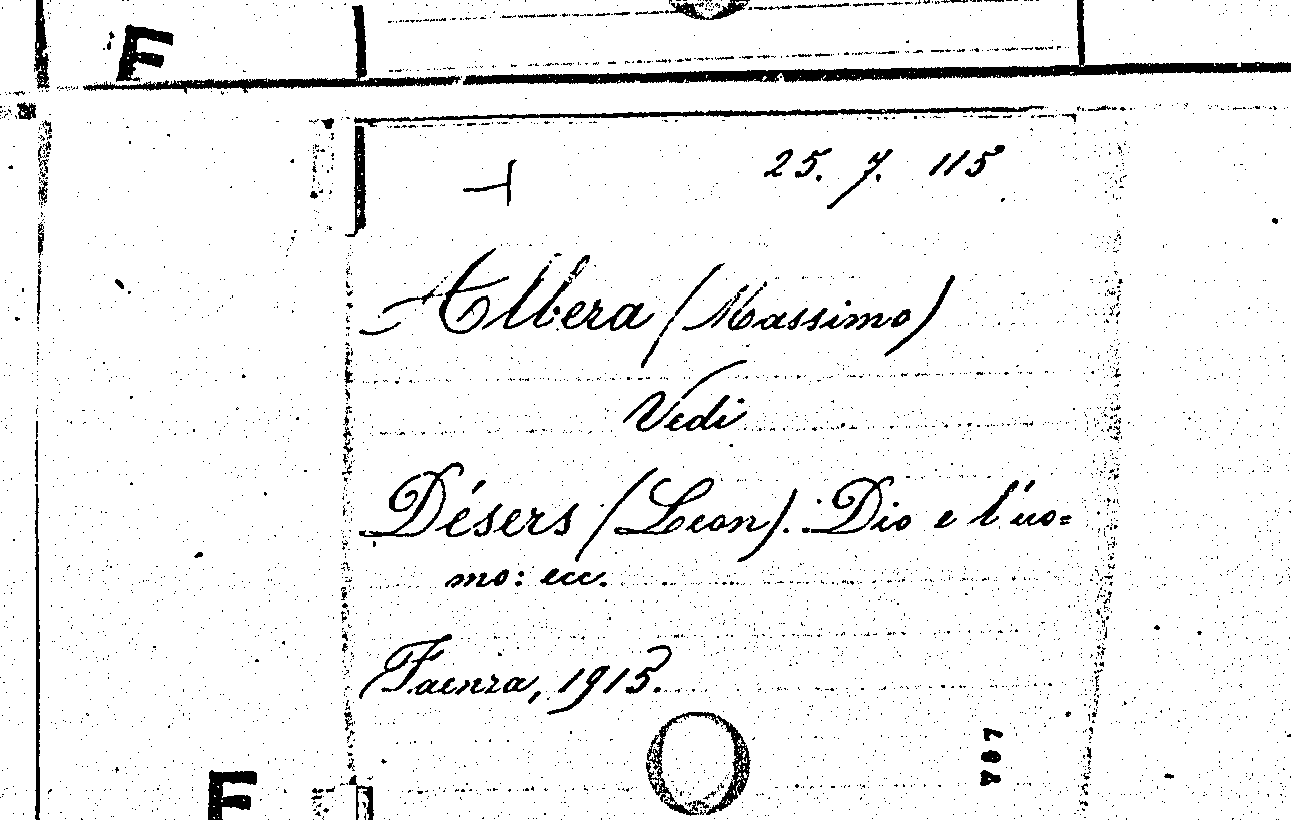 F
25. 7. 115
Albera (Massimo)
Vedi
Désers (Leon). Dio e l'uo=
mo: ecc.
Faenza, 1915.
797
F